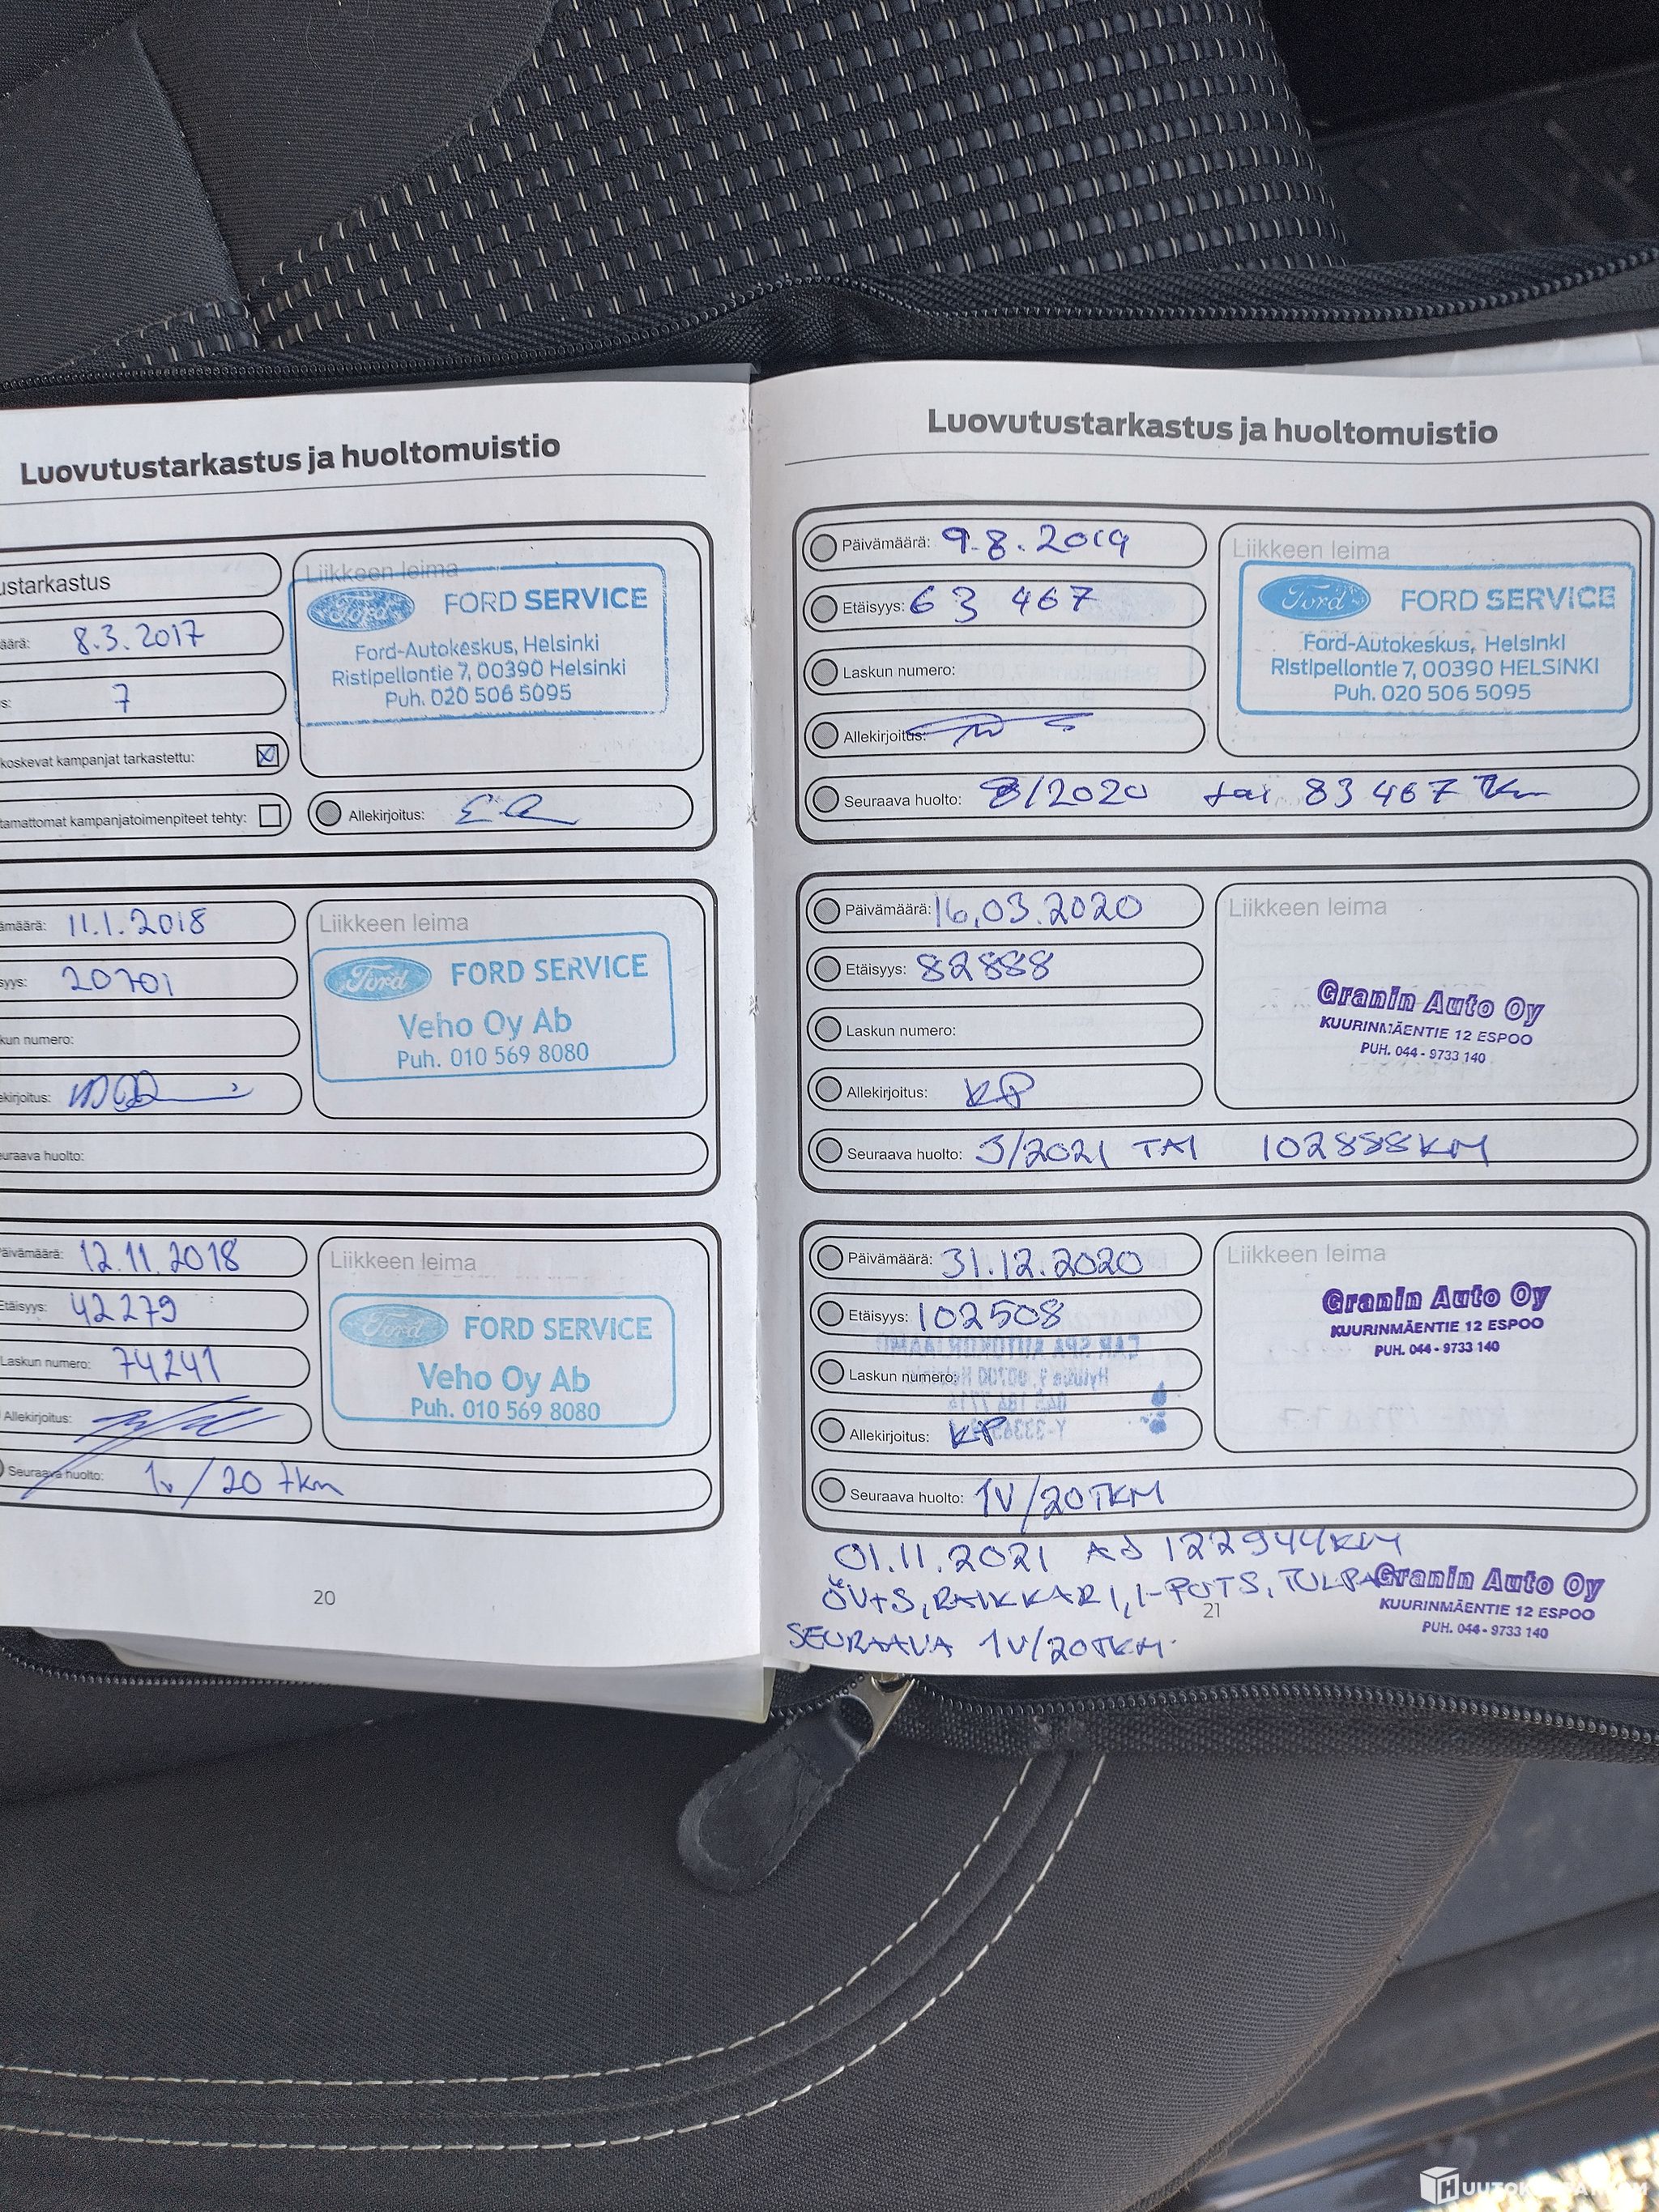 Luovutustarkastus ja huoltomuistio
ustarkastus
äärä: 8.3.2017
s: 7
koskevat kampanjat tarkastettu:
tamattomat kampanjatoimenpiteet tehty:
Liikkeen leima
Ford FORD SERVICE
Ford-Autokeskus, Helsinki
Ristipellontie 7, 00390 Helsinki
Puh. 020 506 5095
Allekirjoitus:
ämäärä: 11.1.2018
syys: 20701
kun numero:
ekirjoitus:
euraava huolto:
Liikkeen leima
Ford FORD SERVICE
Veho Oy Ab
Puh. 010 569 8080
Päivämäärä: 12.11.2018
Etäisyys: 42279
Laskun numero: 74241
Allekirjoitus:
Seuraava huolto: 1v/20 tkm
Liikkeen leima
Ford FORD SERVICE
Veho Oy Ab
Puh. 010 569 8080
20
Luovutustarkastus ja huoltomuistio
Päivämäärä: 9.8.2019
Etäisyys: 63 467
Laskun numero:
Allekirjoitus:
Seuraava huolto: 8/2020 tai 83 467 Tkm
Liikkeen leima
Ford FORD SERVICE
Ford-Autokeskus, Helsinki
Ristipellontie 7, 00390 HELSINKI
Puh. 020 506 5095
Päivämäärä: 16.03.2020
Etäisyys: 82888
Laskun numero:
Allekirjoitus: KP
Seuraava huolto: 3/2021 TAI 102888KM
Liikkeen leima
Granin Auto Oy
KUURINMÄENTIE 12 ESPOO
PUH. 044 - 9733 140
Päivämäärä: 31.12.2020
Etäisyys: 102508
Laskun numero:
Allekirjoitus: KP
Seuraava huolto: 1V/20TKM
Liikkeen leima
Granin Auto Oy
KUURINMÄENTIE 12 ESPOO
PUH. 044 - 9733 140
01.11.2021 AJ 122944KM
ÖV+S, RAIKKARI, I-PUTS, TULPA
SEURAAVA 1V/20TKM.
Granin Auto Oy
KUURINMÄENTIE 12 ESPOO
PUH. 044 - 9733 140
21